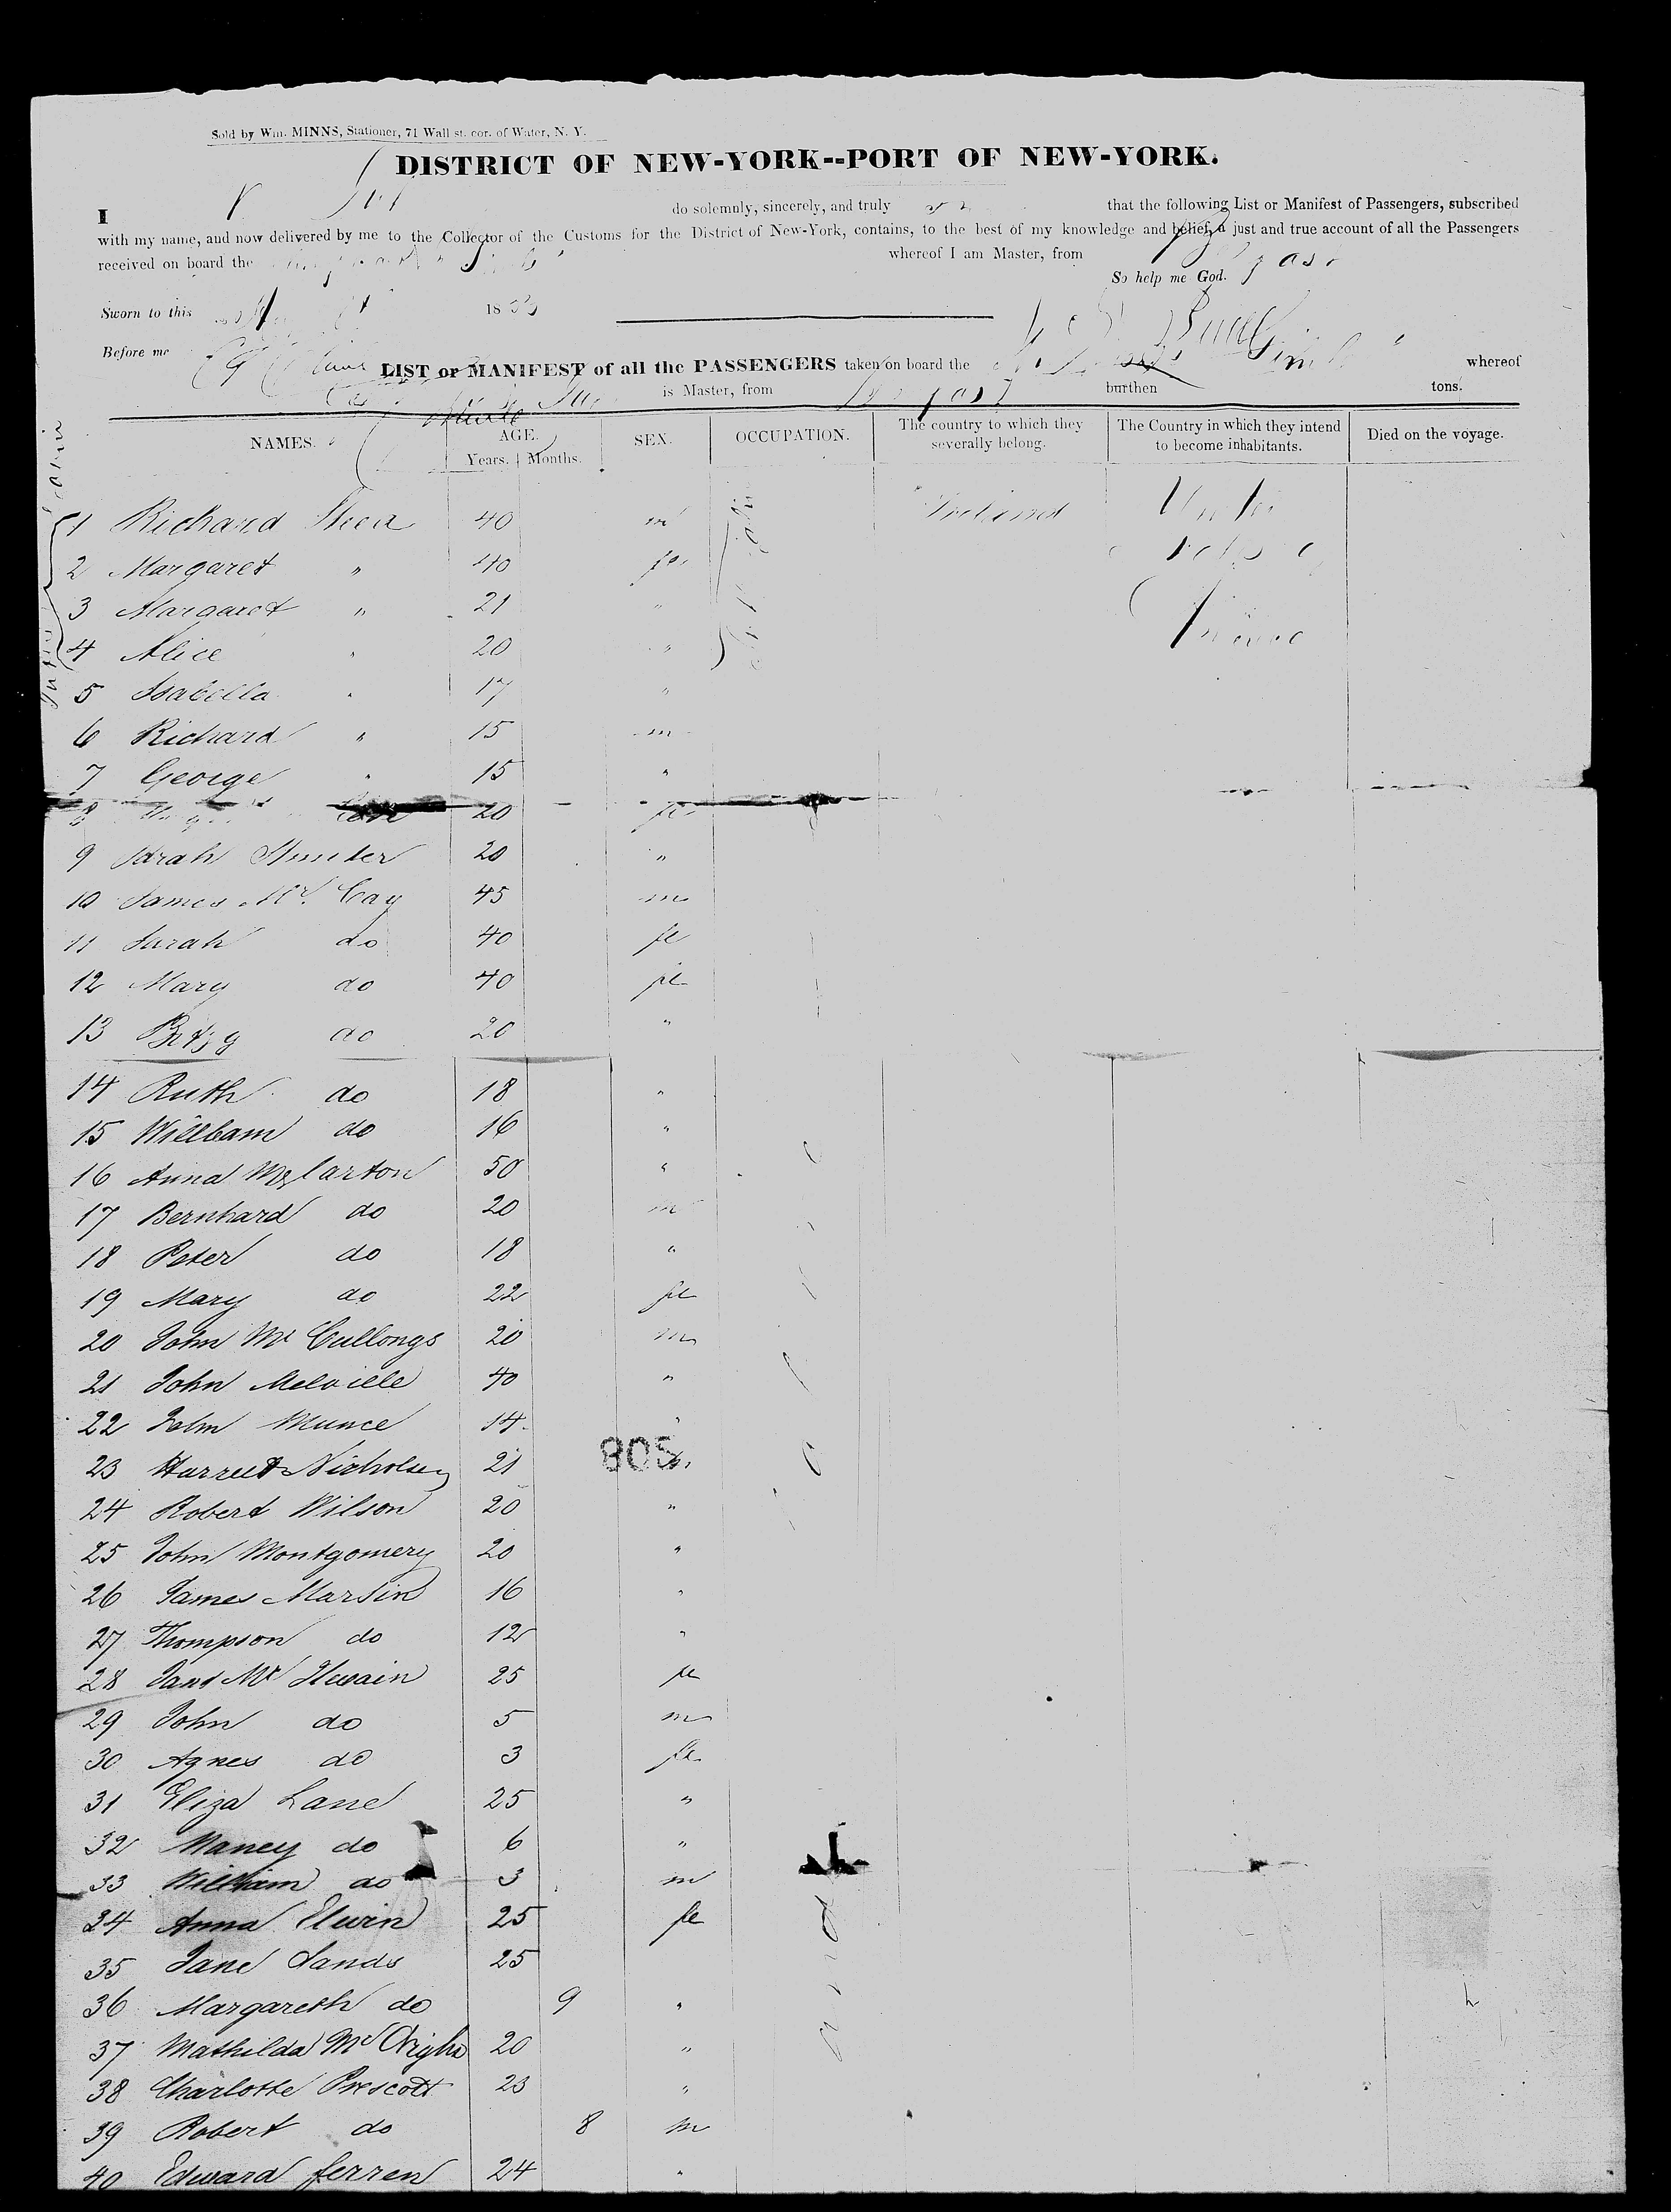 Sold by Wm. MINNS, Stationer, 71 Wall st. cor. of Water, N. Y.
DISTRICT OF NEW-YORK--PORT OF NEW-YORK.
I do solemnly, sincerely, and truly that the following List or Manifest of Passengers, subscribed
with my name, and now delivered by me to the Collector of the Customs for the District of New-York, contains, to the best of my knowledge and belief, a just and true account of all the Passengers
received on board the whereof I am Master, from
So help me God.
Sworn to this 1853
Before me
LIST or MANIFEST of all the PASSENGERS taken on board the whereof
is Master, from burthen tons.
NAMES. AGE. SEX. OCCUPATION. The country to which they severally belong. The Country in which they intend to become inhabitants. Died on the voyage.
Years. Months.
1 Richard 40 m Ireland
2 Margaret " 40 fe
3 Margaret " 21 "
4 Alice " 20 "
5 Isabella " 17 "
6 Richard " 15 m
7 George " 15 "
8 20 fe
9 Sarah Hunter 20 "
10 James Mc Cay 45 m
11 Sarah do 40 fe
12 Mary do 40 fe
13 Betzy do 20 "
14 Ruth do 18 "
15 William do 16 "
16 Anna McCarton 50 "
17 Bernhard do 20 m
18 Peter do 18 "
19 Mary do 22 fe
20 John Mc Cullongs 20 m
21 John Melville 40 "
22 John Munce 14 "
23 Harriet Nicholsen 21 "
805
24 Robert Wilson 20 "
25 John Montgomery 20 "
26 James Martin 16 "
27 Thompson do 12 "
28 Jane Mc Ilwain 25 fe
29 John do 5 m
30 Agnes do 3 fe
31 Eliza Lane 25 "
32 Nancy do 6 "
33 William do 3 m
34 Anna Elwin 25 fe
35 Jane Sands 25
36 Margareth do 9 "
37 Mathilda Mc 20 "
38 Charlotte Prescott 23 "
39 Robert do 8 m
40 Edward Ferren 24 "